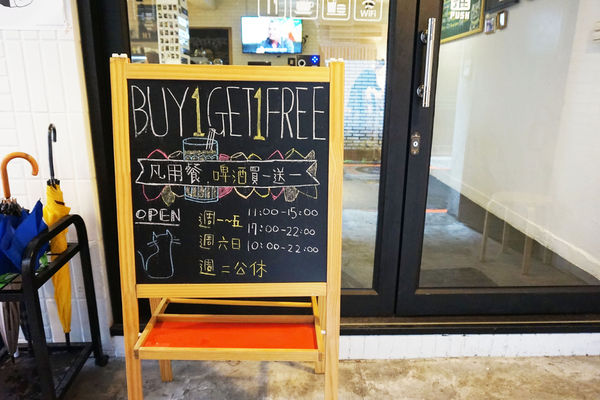 WiFi
PUSH
BUY1GET1FREE
凡用餐,啤酒買一送一
OPEN
週一~五 11:00-15:00
17:00-22:00
週六日 10:00-22:00
週二公休